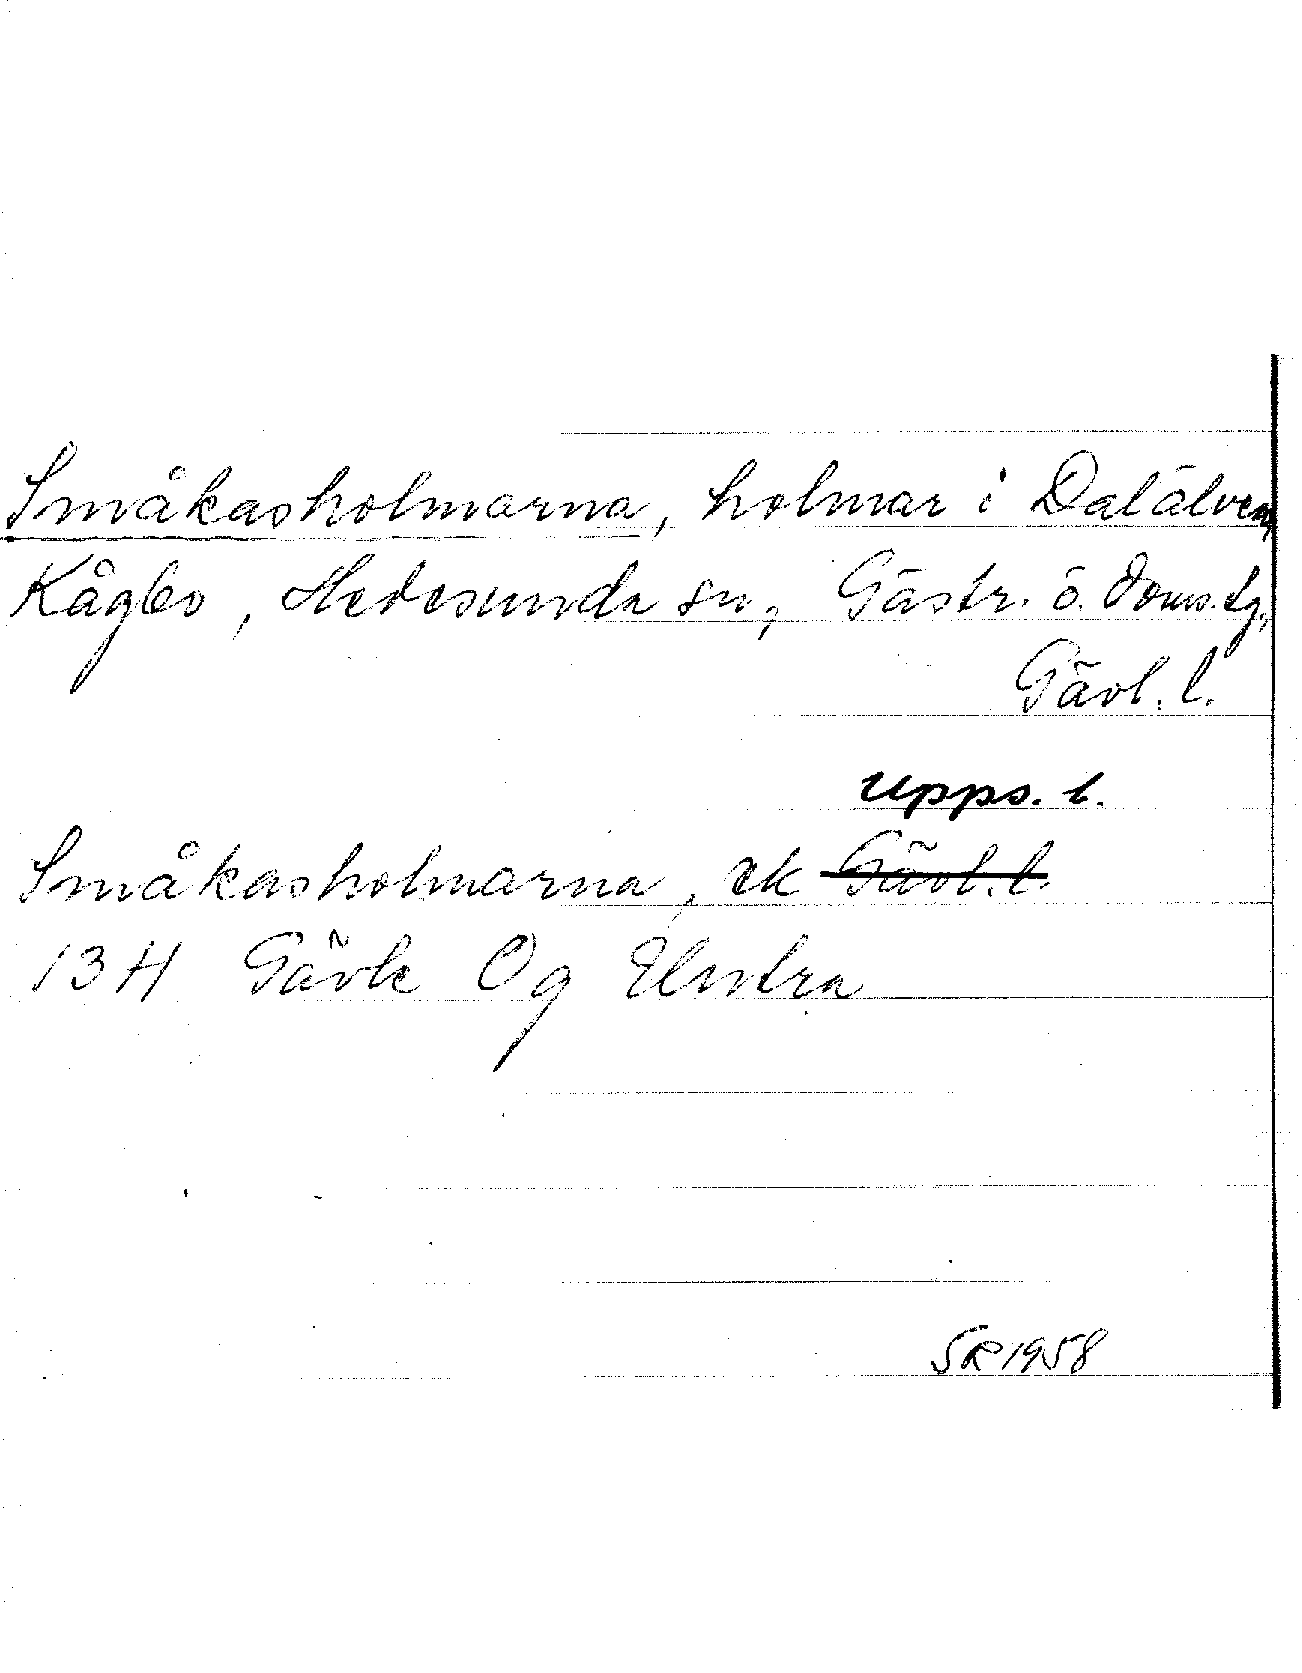 Småkasholmarna, holmar i Dalälven,
Kågbo, Hedesunda sn, Gästr. ö. doms.tg,
Gävl. l.
Upps. l.
Småkasholmarna, ek Gävl. l.
13H Gävle Og Untra
SR 1958